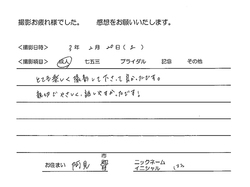 撮影お疲れ様でした。 感想をお願いいたします。
<撮影日時> 年 月 日( )
<撮影項目> 成人 七五三 ブライダル 記念 その他
とても楽しく撮影して下さって良かったです。
親切でやさしく、話しやすかったです。
お住まい 阿見 市 町 村 ニックネーム イニシャル